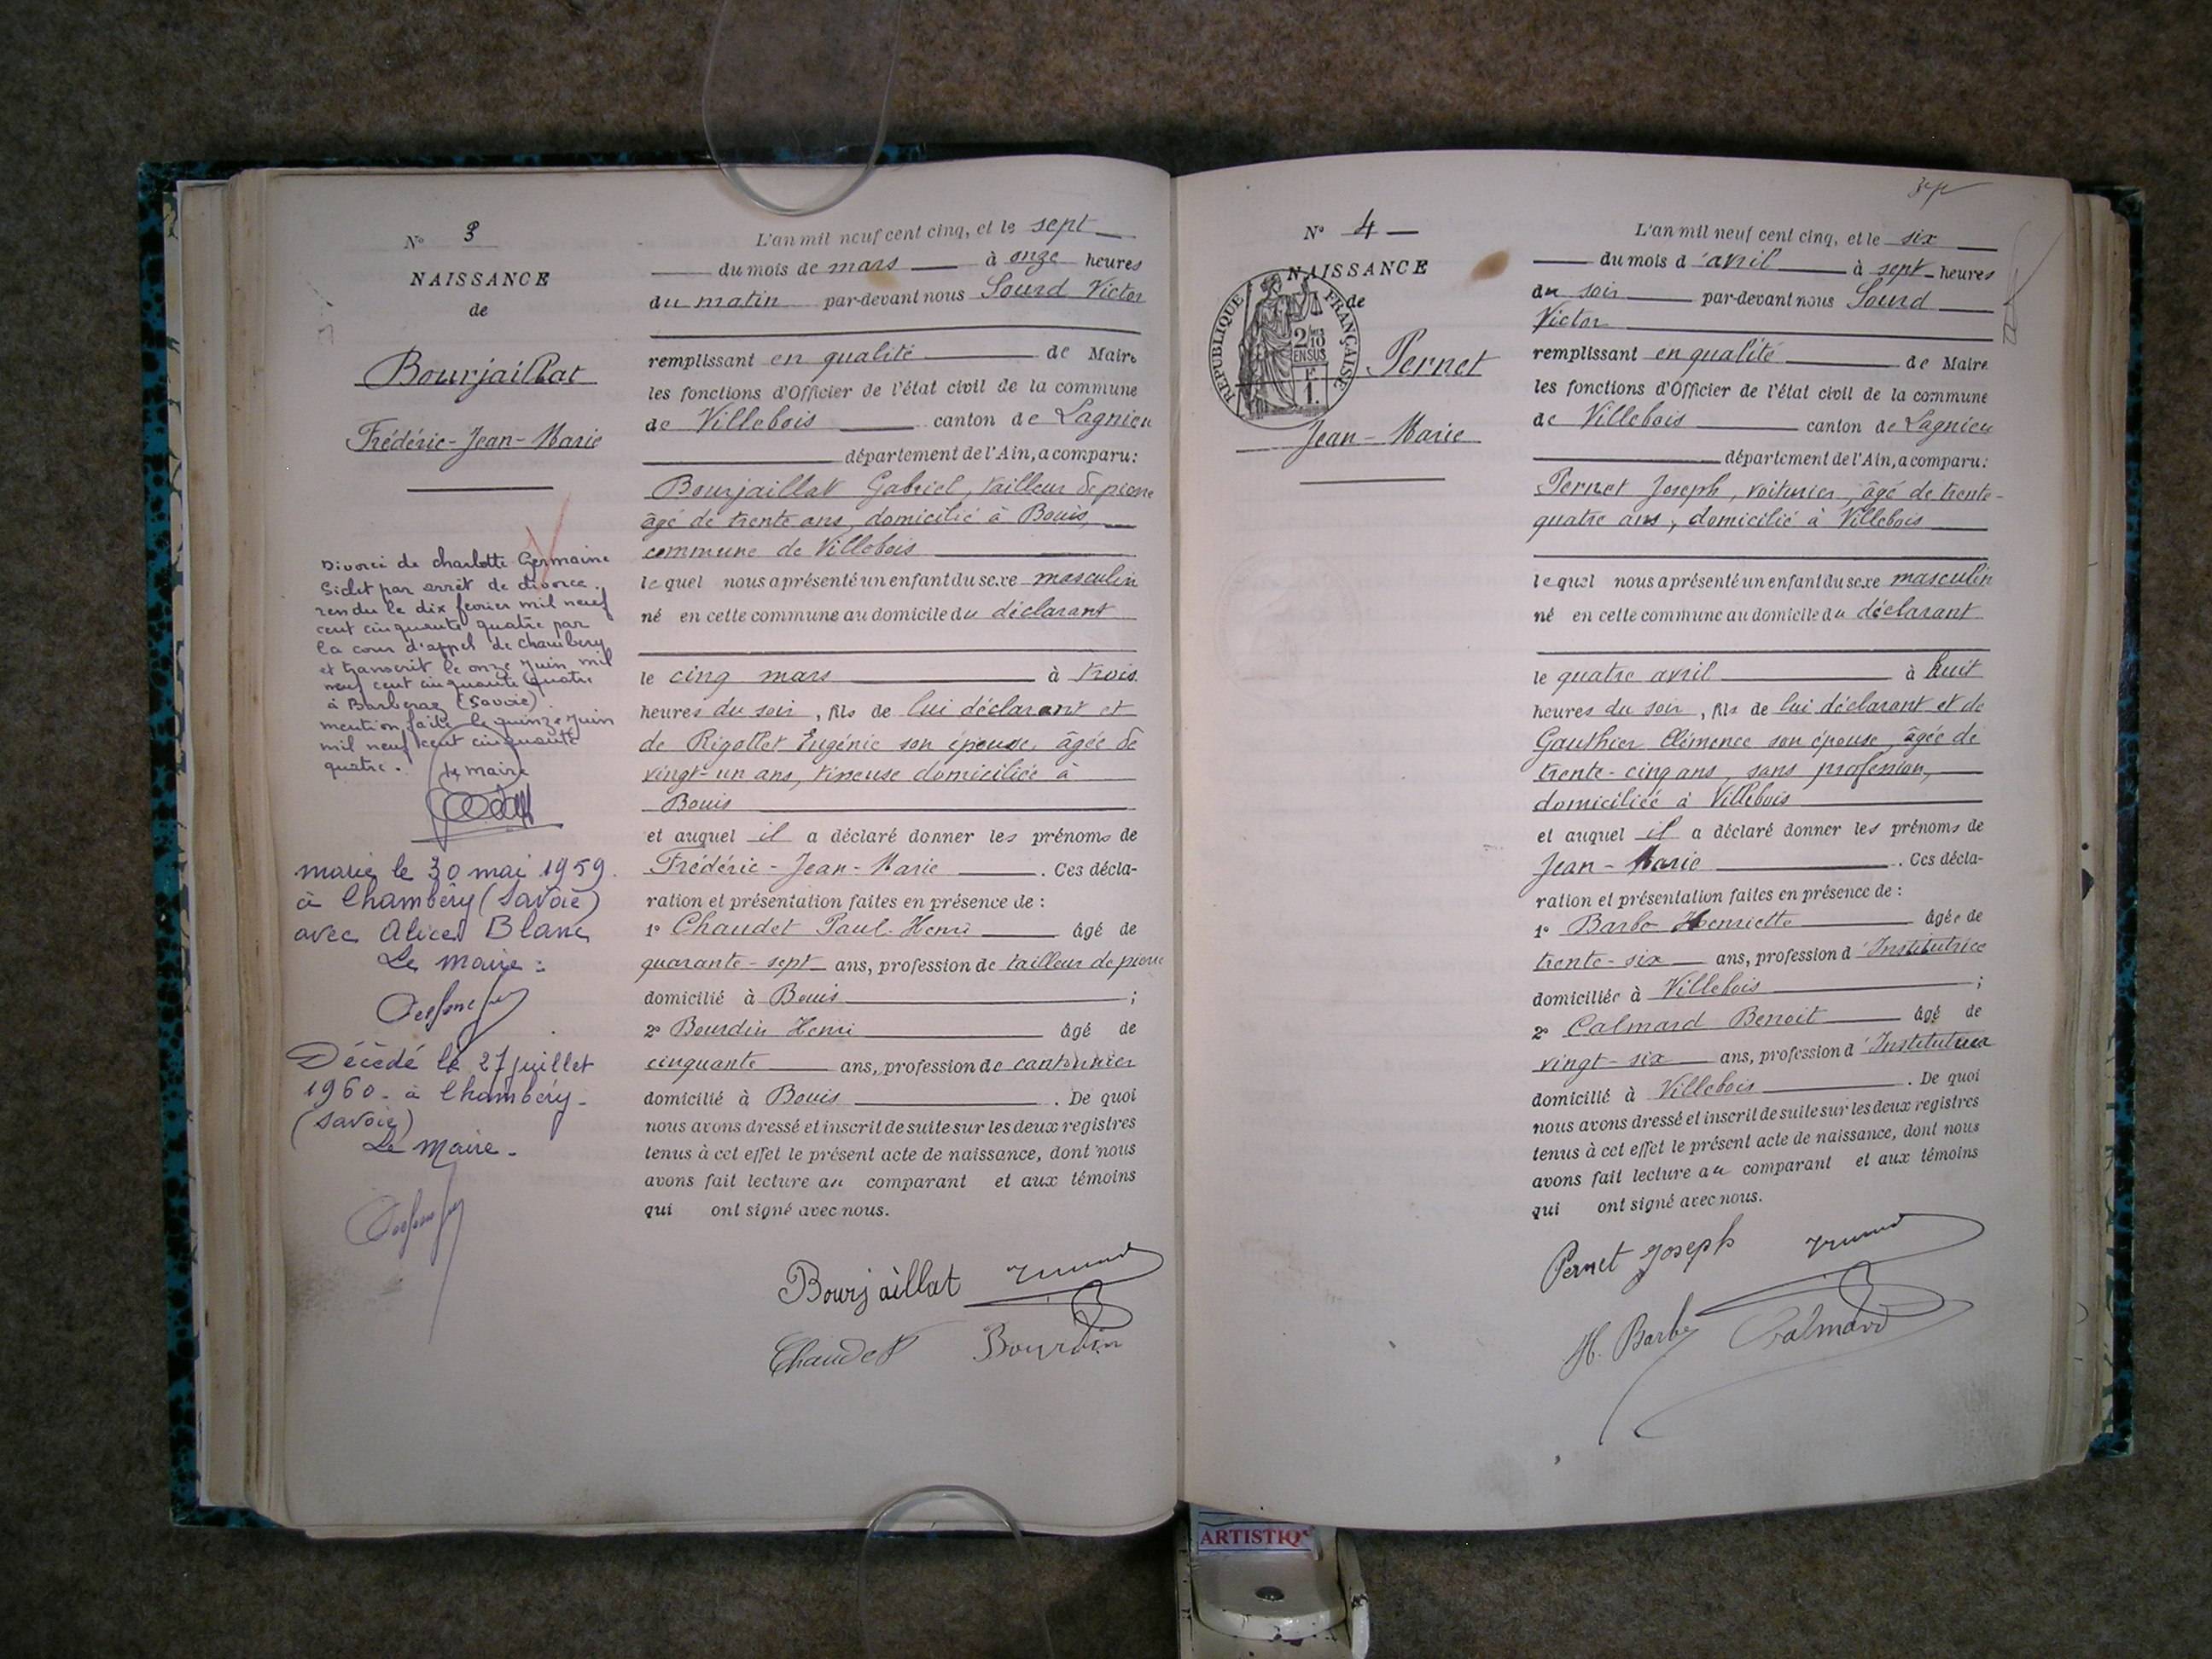 N° 3
NAISSANCE
de
Bourjaillat
Frédéric-Jean-Marie
Divorcé de charlotte Germaine
par arrêt de divorce
rendu le dix fevrier mil neuf
cent cinquante quatre par
la cour d'appel de chambery
et transcrit le onze Juin mil
neuf cent cinquante quatre
à Barberaz (Savoie).
mention faite le quinze Juin
mil neuf cent cinquante
quatre.
Le maire
marié le 30 mai 1959.
à Chambéry (Savoie)
avec Alice Blanc
Le Maire :
Décédé le 27 juillet
1960 - à Chambéry -
(Savoie)
Le Maire -
L'an mil neuf cent cinq, et le sept
du mois de mars à onze heures
du matin par-devant nous Sourd Victor
remplissant en qualité de Maire
les fonctions d'Officier de l'état civil de la commune
de Villebois canton de Lagnieu
département de l'Ain, a comparu :
Bourjaillat Gabriel, tailleur de pierre
âgé de trente ans, domicilié à Bouis,
commune de Villebois
lequel nous a présenté un enfant du sexe masculin
né en cette commune au domicile du déclarant
le cinq mars à trois
heures du soir, fils de lui déclarant et
de Rigollet Eugénie son épouse, âgée de
vingt-un ans, tisseuse domiciliée à
Bouis
et auquel il a déclaré donner les prénoms de
Frédéric-Jean-Marie. Ces décla-
ration et présentation faites en présence de :
1° Chaudet Paul-Henri âgé de
quarante-sept ans, profession de tailleur de pierre
domicilié à Bouis ;
2° Bourdin Henri âgé de
cinquante ans, profession de cantonnier
domicilié à Bouis. De quoi
nous avons dressé et inscrit de suite sur les deux registres
tenus à cet effet le présent acte de naissance, dont nous
avons fait lecture au comparant et aux témoins
qui ont signé avec nous.
Bourjaillat
Chaudet Bourdin
N° 4
NAISSANCE
de
RÉPUBLIQUE FRANÇAISE
2/10
EN SUS
F
1.
Pernet
Jean-Marie
L'an mil neuf cent cinq, et le six
du mois d'avril à sept heures
du soir par-devant nous Sourd
Victor
remplissant en qualité de Maire
les fonctions d'Officier de l'état civil de la commune
de Villebois canton de Lagnieu
département de l'Ain, a comparu :
Pernet Joseph, voiturier, âgé de trente-
quatre ans, domicilié à Villebois
lequel nous a présenté un enfant du sexe masculin
né en cette commune au domicile du déclarant
le quatre avril à huit
heures du soir, fils de lui déclarant et de
Gauthier Clémence son épouse, âgée de
trente-cinq ans, sans profession,
domiciliée à Villebois
et auquel il a déclaré donner les prénoms de
Jean-Marie. Ces décla-
ration et présentation faites en présence de :
1° Barbe Henriette âgée de
trente-six ans, profession d'Institutrice
domiciliée à Villebois ;
2° Calmard Benoit âgé de
vingt-six ans, profession d'Instituteur
domicilié à Villebois. De quoi
nous avons dressé et inscrit de suite sur les deux registres
tenus à cet effet le présent acte de naissance, dont nous
avons fait lecture au comparant et aux témoins
qui ont signé avec nous.
Pernet Joseph
H. Barbe Calmard
ARTISTIQ